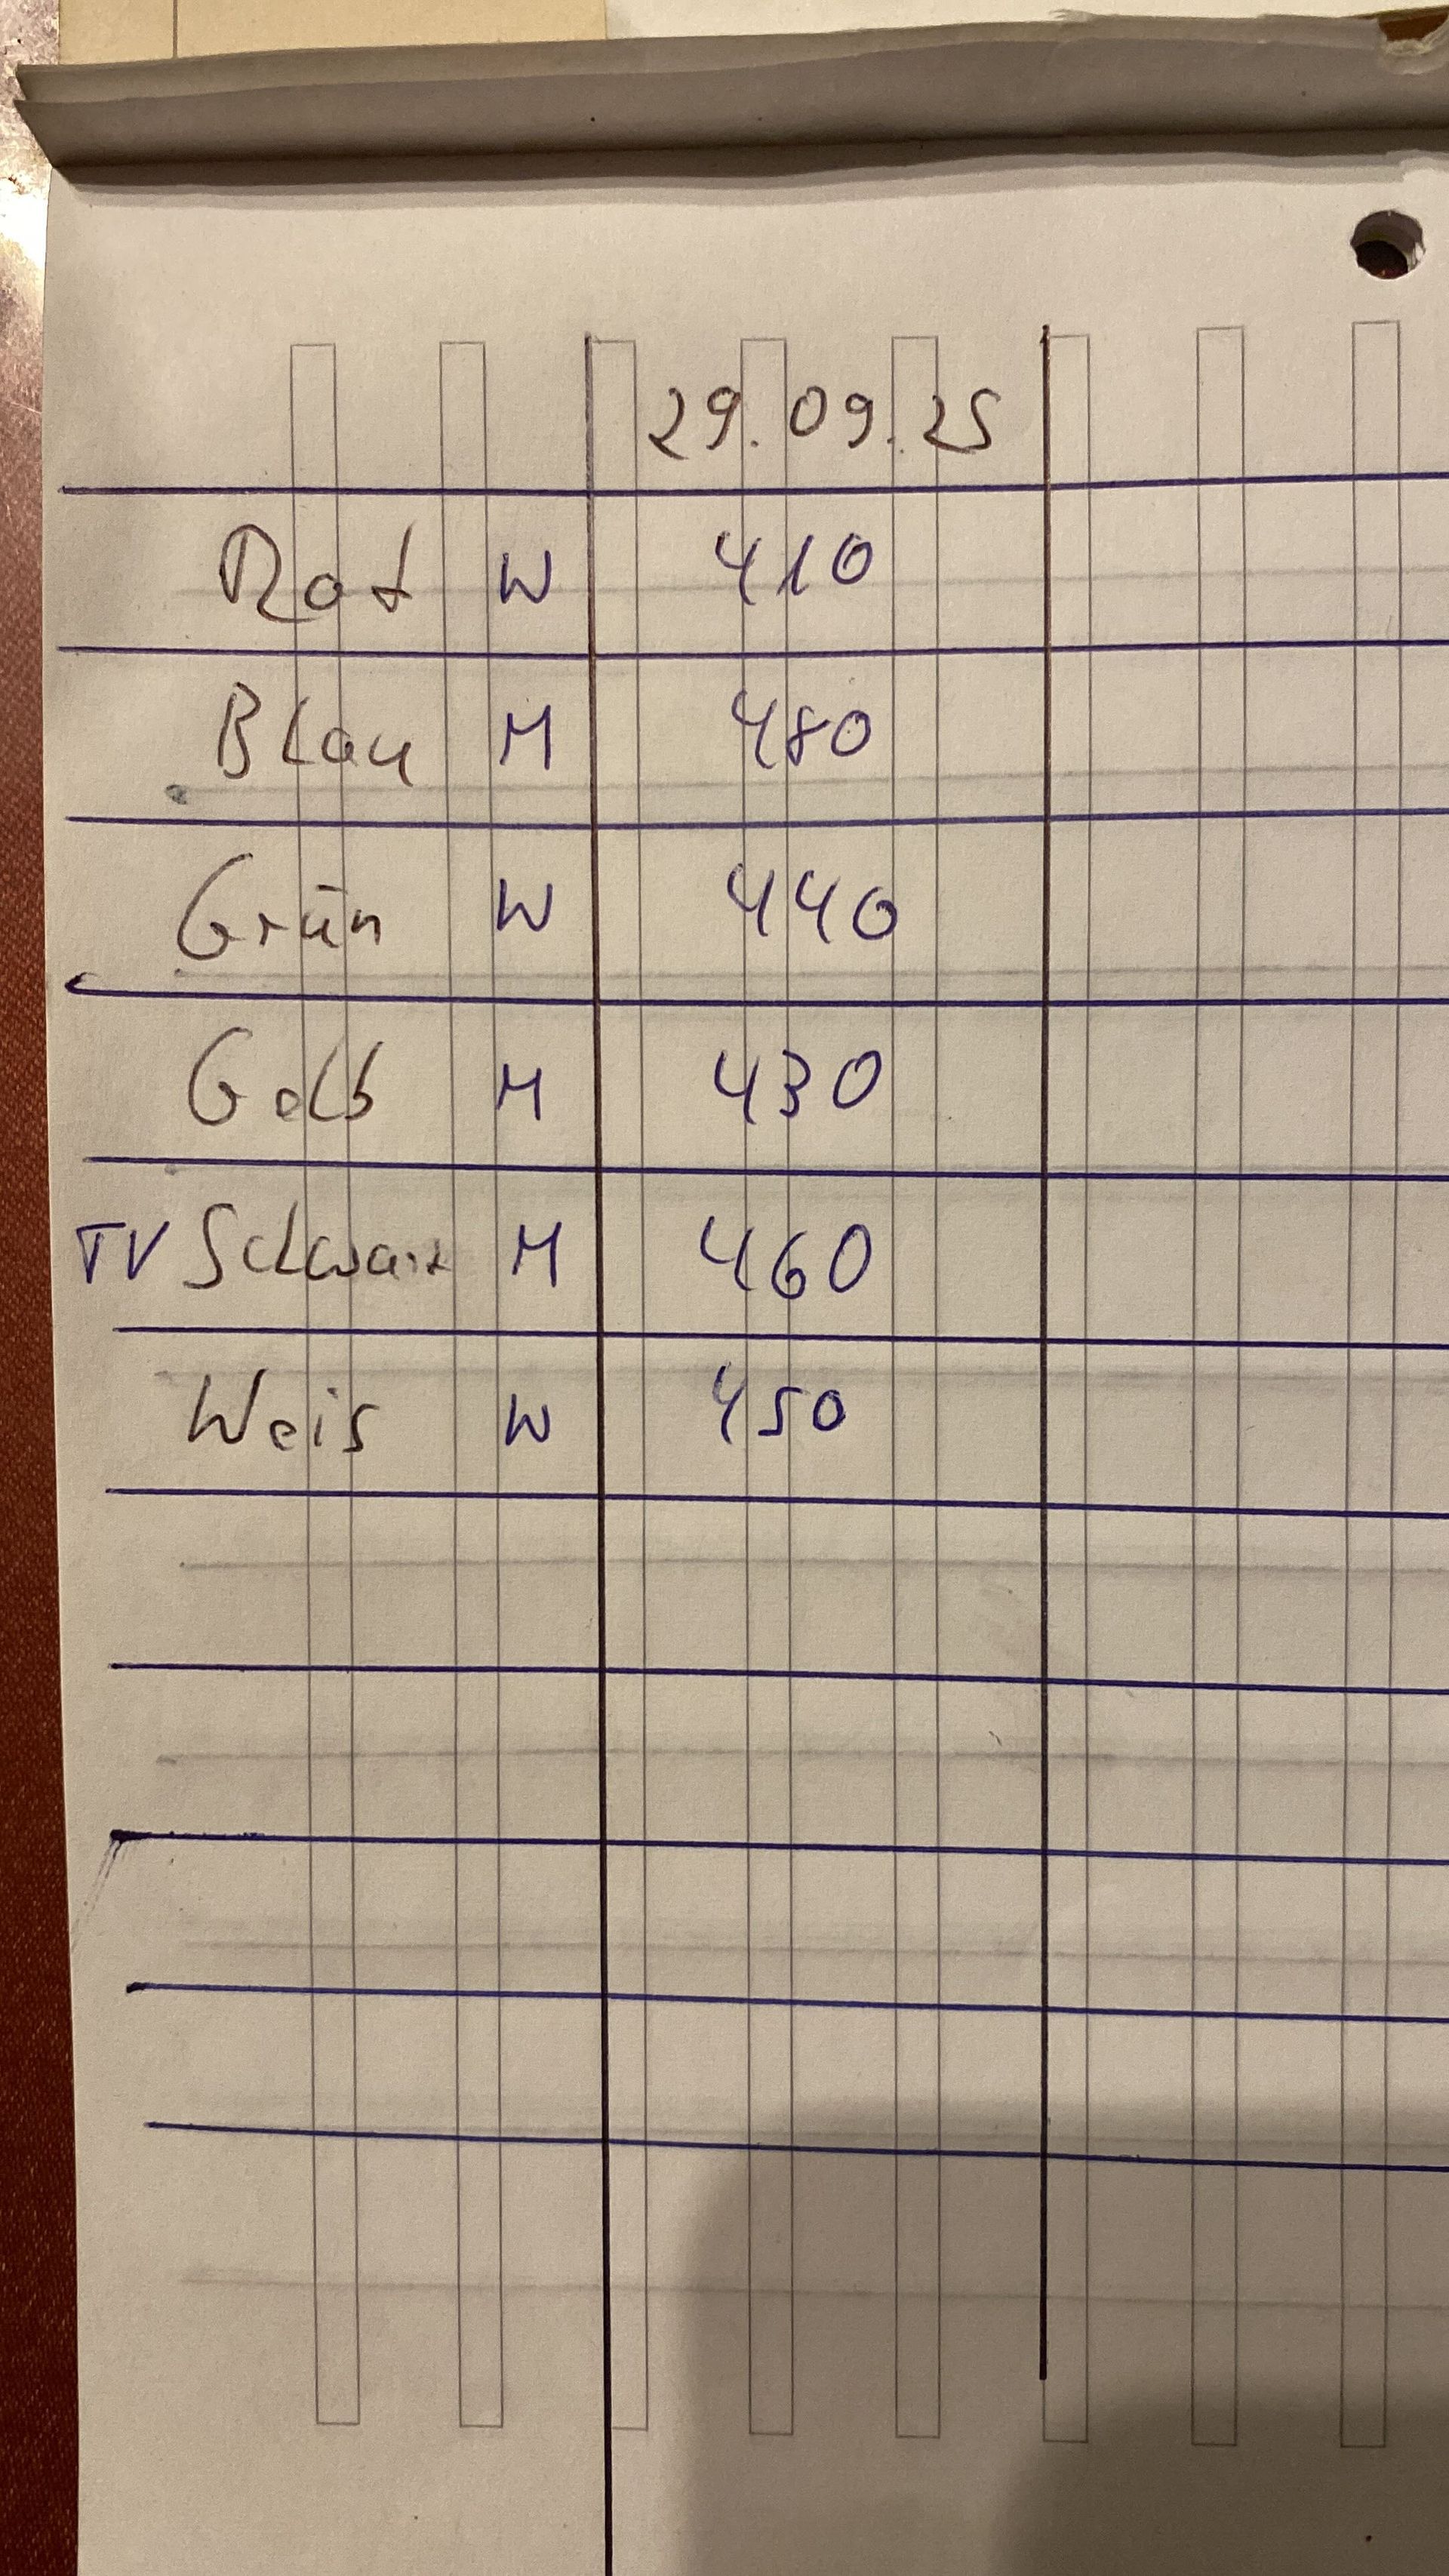 29.09.25
Rot W 410
Blau M 480
Grün W 440
Gelb M 430
TV Schwarz M 460
Weis W 450